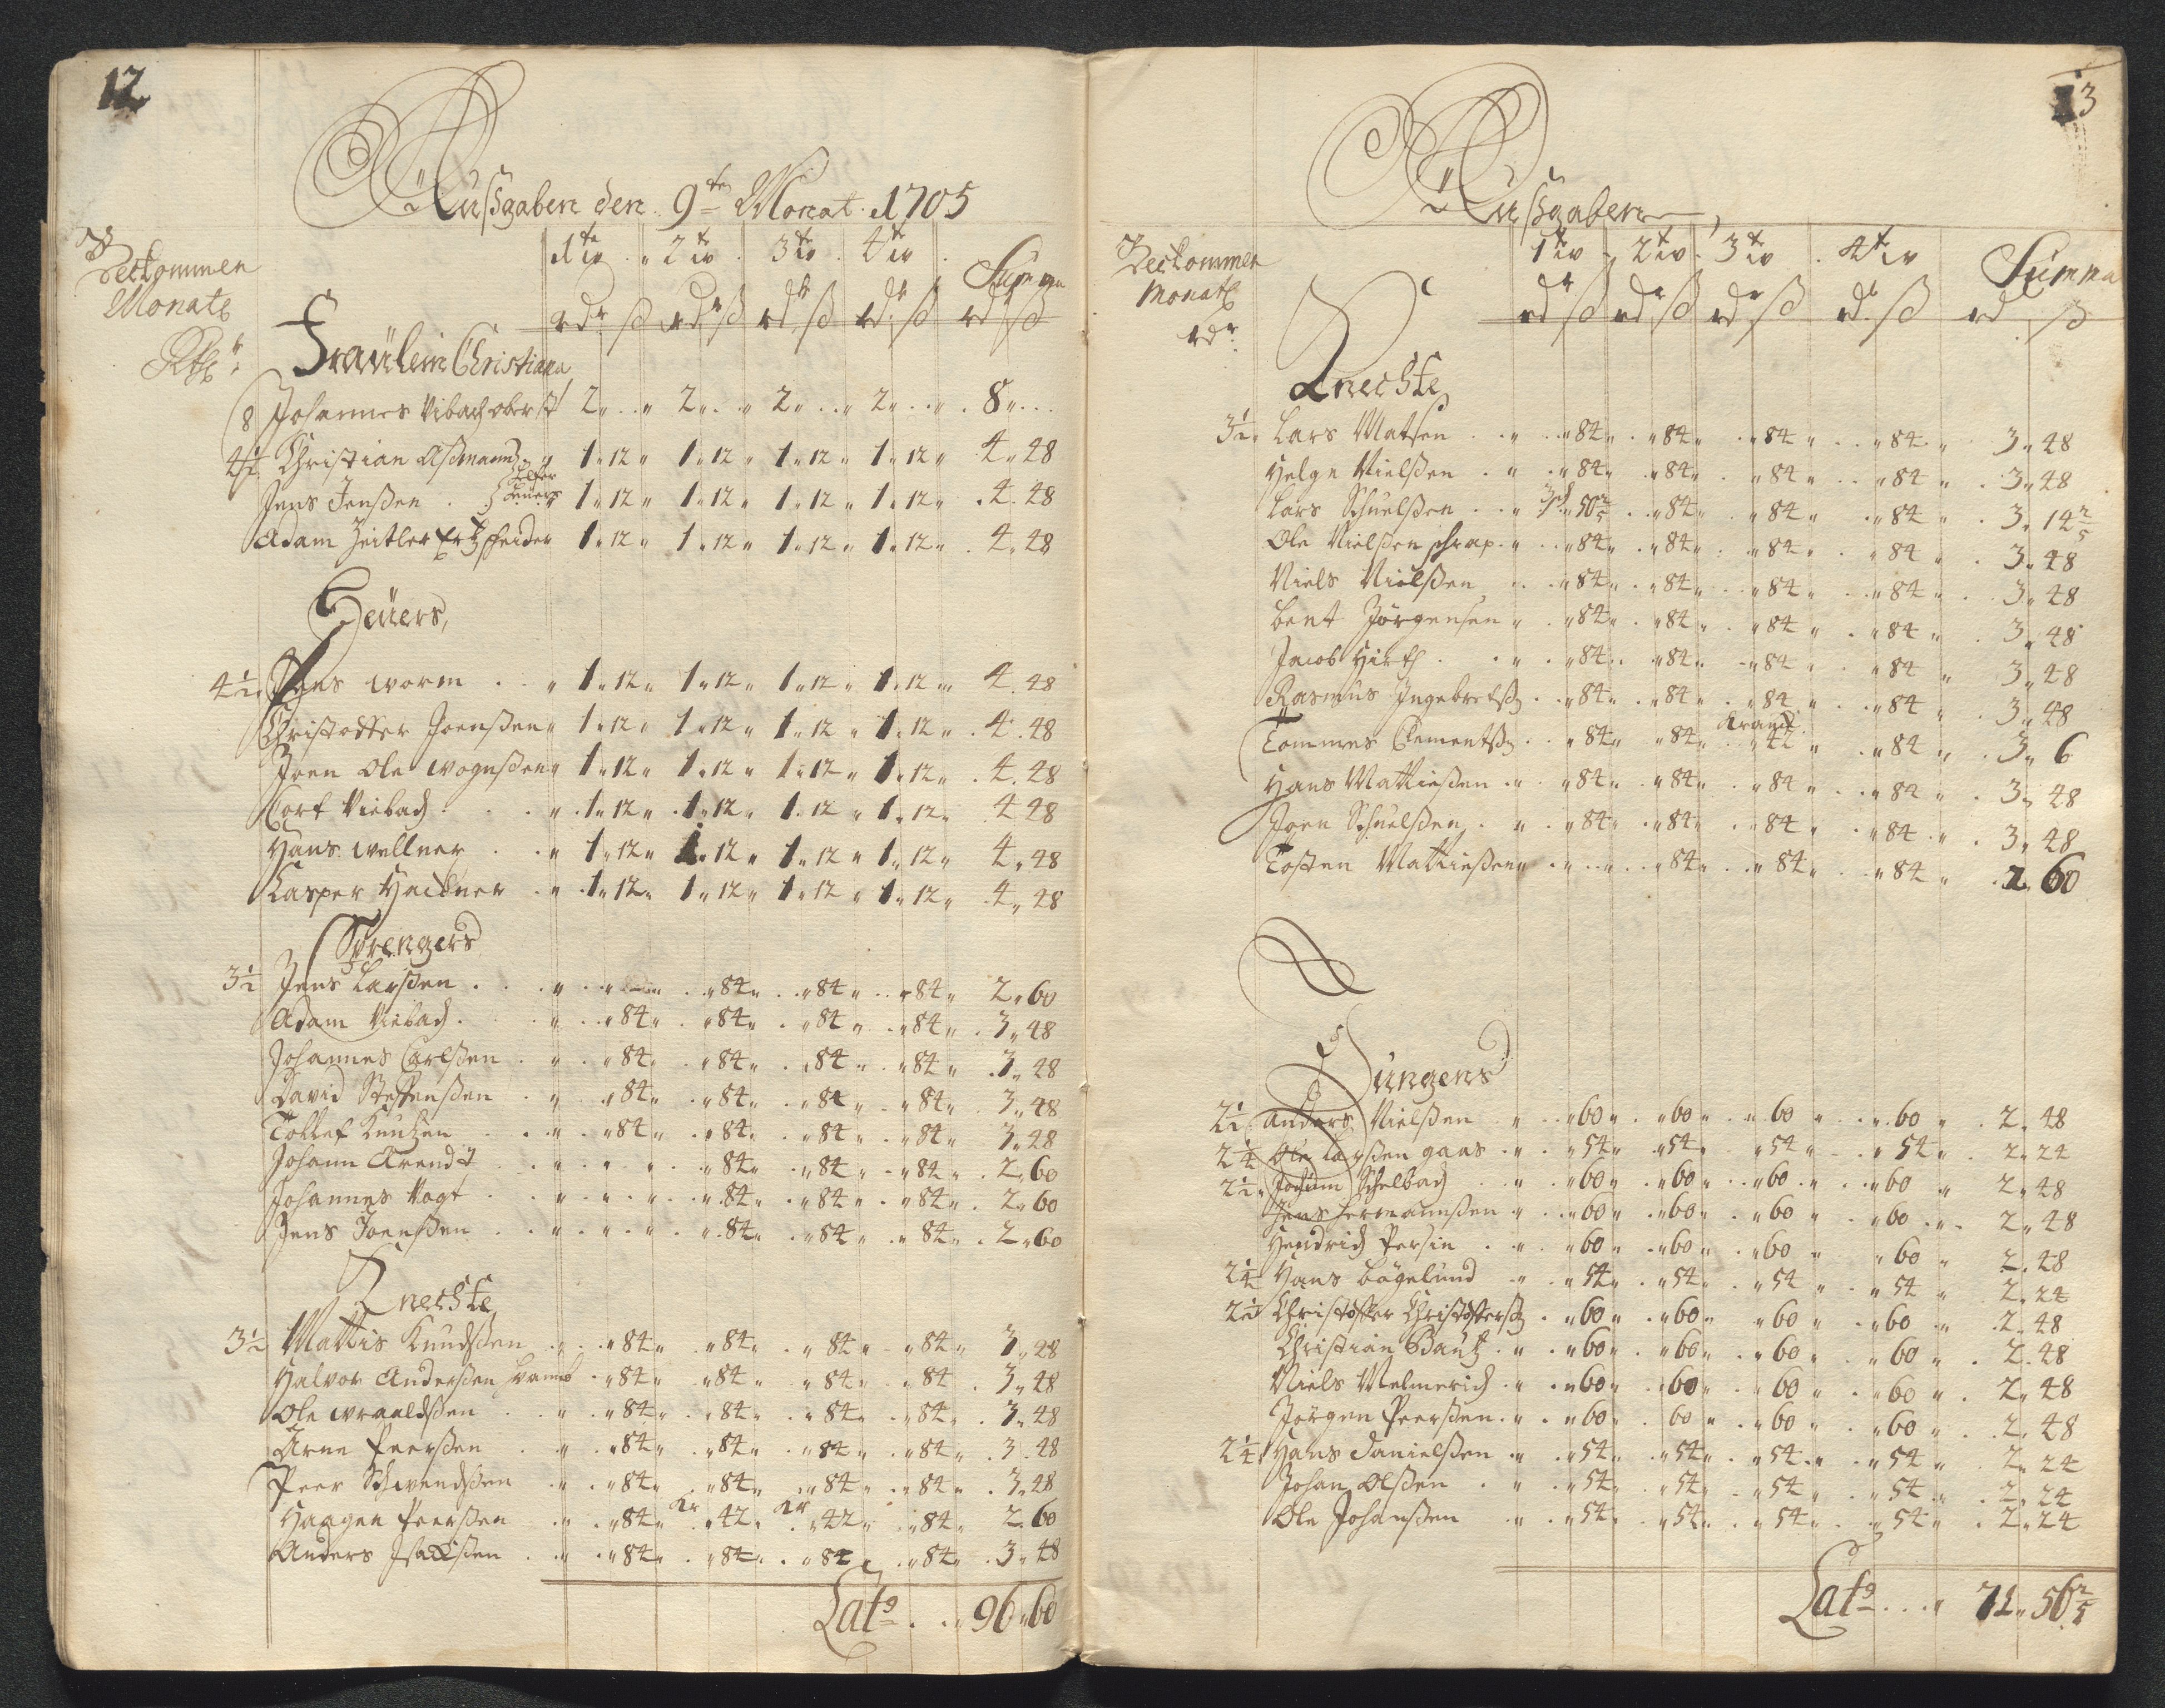 12
Außgaben den 9te Monat 1705
Beckommen 1te w 2t w 3t w 4t w Summa
Monatl
Rthr rdr ß rdr ß rdr ß rdr ß rd ß
Fraülein Christiana
8 Johannes Vibach oberst 2 „ „ 2 „ „ 2 „ „ 2 „ „ 8 „
4½ Christian Aßmann 1 „ 12 „ 1 „ 12 „ 1 „ 12 „ 1 „ 12 „ 4 „ 48
Jens Jenßen 1 „ 12 „ 1 „ 12 „ 1 „ 12 „ 1 „ 12 „ 4 „ 48
Adam Zeitler Ertzscheider 1 „ 12 „ 1 „ 12 „ 1 „ 12 „ 1 „ 12 „ 4 „ 48
Heüers
4½ Jens worm 1 „ 12 „ 1 „ 12 „ 1 „ 12 „ 1 „ 12 „ 4 „ 48
Christoffer Joenßen 1 „ 12 „ 1 „ 12 „ 1 „ 12 „ 1 „ 12 „ 4 „ 48
Joen Ole wognßen 1 „ 12 „ 1 „ 12 „ 1 „ 12 „ 1 „ 12 „ 4 „ 48
Cort Viebach 1 „ 12 „ 1 „ 12 „ 1 „ 12 „ 1 „ 12 „ 4 48
Hans wellner 1 „ 12 „ 1 „ 12 „ 1 „ 12 „ 1 „ 12 „ 4 „ 48
Casper Hackner 1 „ 12 „ 1 „ 12 „ 1 „ 12 „ 1 „ 12 „ 4 „ 48
Sprengers
3½ Jens Larßen „ „ „ 84 „ „ 84 „ „ 84 „ 2 „ 60
Adam Viebach „ „ 84 „ „ 84 „ „ 84 „ „ 84 „ 3 „ 48
Johannes Carlßen „ „ 84 „ „ 84 „ „ 84 „ „ 84 „ 3 „ 48
David Steffenßen „ „ 84 „ „ 84 „ „ 84 „ „ 84 „ 3 „ 48
Tollef Knutzen „ „ 84 „ „ 84 „ „ 84 „ „ 84 „ 3 „ 48
Johann Arendt „ „ „ „ 84 „ „ 84 „ „ 84 „ 2 „ 60
Johannes Vogt „ „ „ „ 84 „ „ 84 „ „ 84 „ 2 „ 60
Jens Joenßen „ „ „ „ 84 „ „ 84 „ „ 84 „ 2 „ 60
Knechte
3½ Mattis Knudßen „ „ 84 „ „ 84 „ „ 84 „ „ 84 „ 3 „ 48
Halvor Anderßen „ 84 „ „ 84 „ „ 84 „ „ 84 3 „ 48
Ole wraaldßen „ „ 84 „ „ 84 „ „ 84 „ „ 84 „ 3 „ 48
Arne Peerßen „ „ 84 „ „ 84 „ „ 84 „ „ 84 „ 3 „ 48
Peer Schwendßen „ „ 84 „ „ 84 „ „ 84 „ „ 84 „ 3 „ 48
Kr Kr
Haagen Peerßen „ „ 84 „ „ 42 „ „ 42 „ „ 84 „ 2 „ 60
Anders Isackßen „ „ 84 „ „ 84 „ „ 84 „ „ 84 „ 3 „ 48
Lato „ 96 „ 60
13
Außgaben
Beckommen 1t w 2t w 3t w 4t w Summa
Monatl
rdr rdr ß rdr ß rdr ß rdr ß rd ß
Knechte
3½ Lars Matsen „ „ 84 „ „ 84 „ „ 84 „ „ 84 „ 3 „ 48
Helge Nielßen „ „ 84 „ „ 84 „ „ 84 „ „ 84 „ 3 „ 48
Lars Schuelßen „ 3 sch „ 50 2/5 „ 84 „ „ 84 „ „ 84 „ 3 „ 14 2/5
Ole Nielßen schrap „ „ 84 „ „ 84 „ „ 84 „ „ 84 3 „ 48
Niels Nielßen „ „ 84 „ „ 84 „ „ 84 „ „ 84 „ 3 „ 48
Bent Jörgensen „ „ 84 „ „ 84 „ „ 84 „ „ 84 „ 3 „ 48
Jacob Hirth „ „ 84 „ „ 84 „ „ 84 „ „ 84 „ 3 „ 48
Rasmus Ingebretß „ 84 „ „ 84 „ „ 84 „ „ 84 „ 3 „ 48
Kranck
Tommes Clementß „ 84 „ „ 84 „ „ 42 „ „ 84 „ 3 „ 6
Hans Mattießen „ „ 84 „ „ 84 „ „ 84 „ „ 84 „ 3 „ 48
Joen Schuelßen „ „ 84 „ „ 84 „ „ 84 „ „ 84 „ 3 „ 48
Tosten Mattießen „ „ „ 84 „ „ 84 „ „ 84 „ 2 „ 60
Jungens
2½ Anders Nielßen „ „ 60 „ „ 60 „ „ 60 „ „ 60 „ 2 „ 48
2¼ Ole Larßen gaas „ „ 54 „ „ 54 „ „ 54 „ „ 54 „ 2 „ 24
2½ Jochim Schelbach „ „ 60 „ „ 60 „ „ 60 „ „ 60 „ 2 „ 48
Jens Hermannßen „ „ 60 „ „ 60 „ „ 60 „ „ 60 „ 2 „ 48
Hendrich Persin „ „ 60 „ „ 60 „ „ 60 „ „ 60 „ 2 „ 48
2¼ Hans Bögelund „ „ 54 „ „ 54 „ „ 54 „ „ 54 „ 2 „ 24
2½ Christoffer Christofferß „ 60 „ „ 60 „ „ 60 „ „ 60 „ 2 „ 48
Christian Bautz „ „ 60 „ „ 60 „ „ 60 „ „ 60 „ 2 „ 48
Niels Melmerich „ „ 60 „ „ 60 „ „ 60 „ „ 60 „ 2 „ 48
Jörgen Peerßen „ „ 60 „ „ 60 „ „ 60 „ „ 60 „ 2 „ 48
2¼ Hans Danielßen „ „ 54 „ „ 54 „ „ 54 „ „ 54 „ 2 „ 24
Johan Olßen „ „ 54 „ „ 54 „ „ 54 „ „ 54 „ 2 „ 24
Ole Johanßen „ „ 54 „ „ 54 „ „ 54 „ „ 54 „ 2 „ 24
Lato „ 71 „ 56 2/5